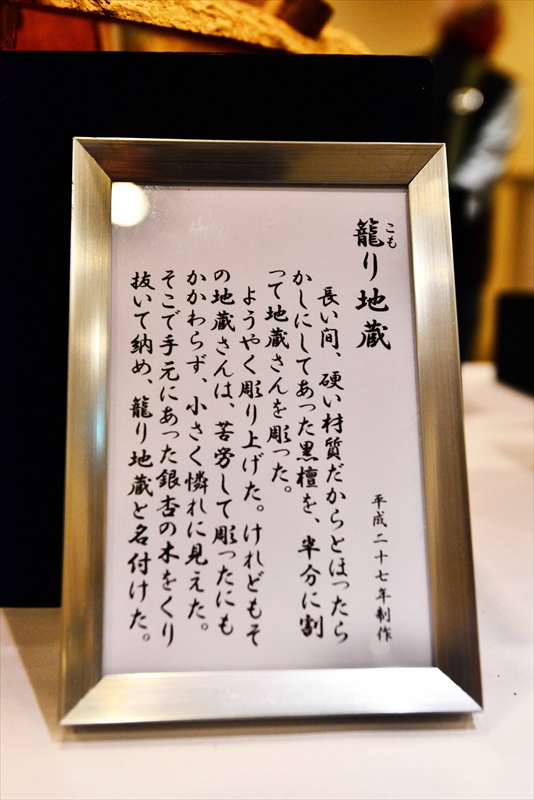 こも
籠り地蔵
平成二十七年制作
長い間、硬い材質だからとほったら
かしにしてあった黒檀を、半分に割
って地蔵さんを彫った。
ようやく彫り上げた。けれどもそ
の地蔵さんは、苦労して彫ったにも
かかわらず、小さく憐れに見えた。
そこで手元にあった銀杏の木をくり
抜いて納め、籠り地蔵と名付けた。